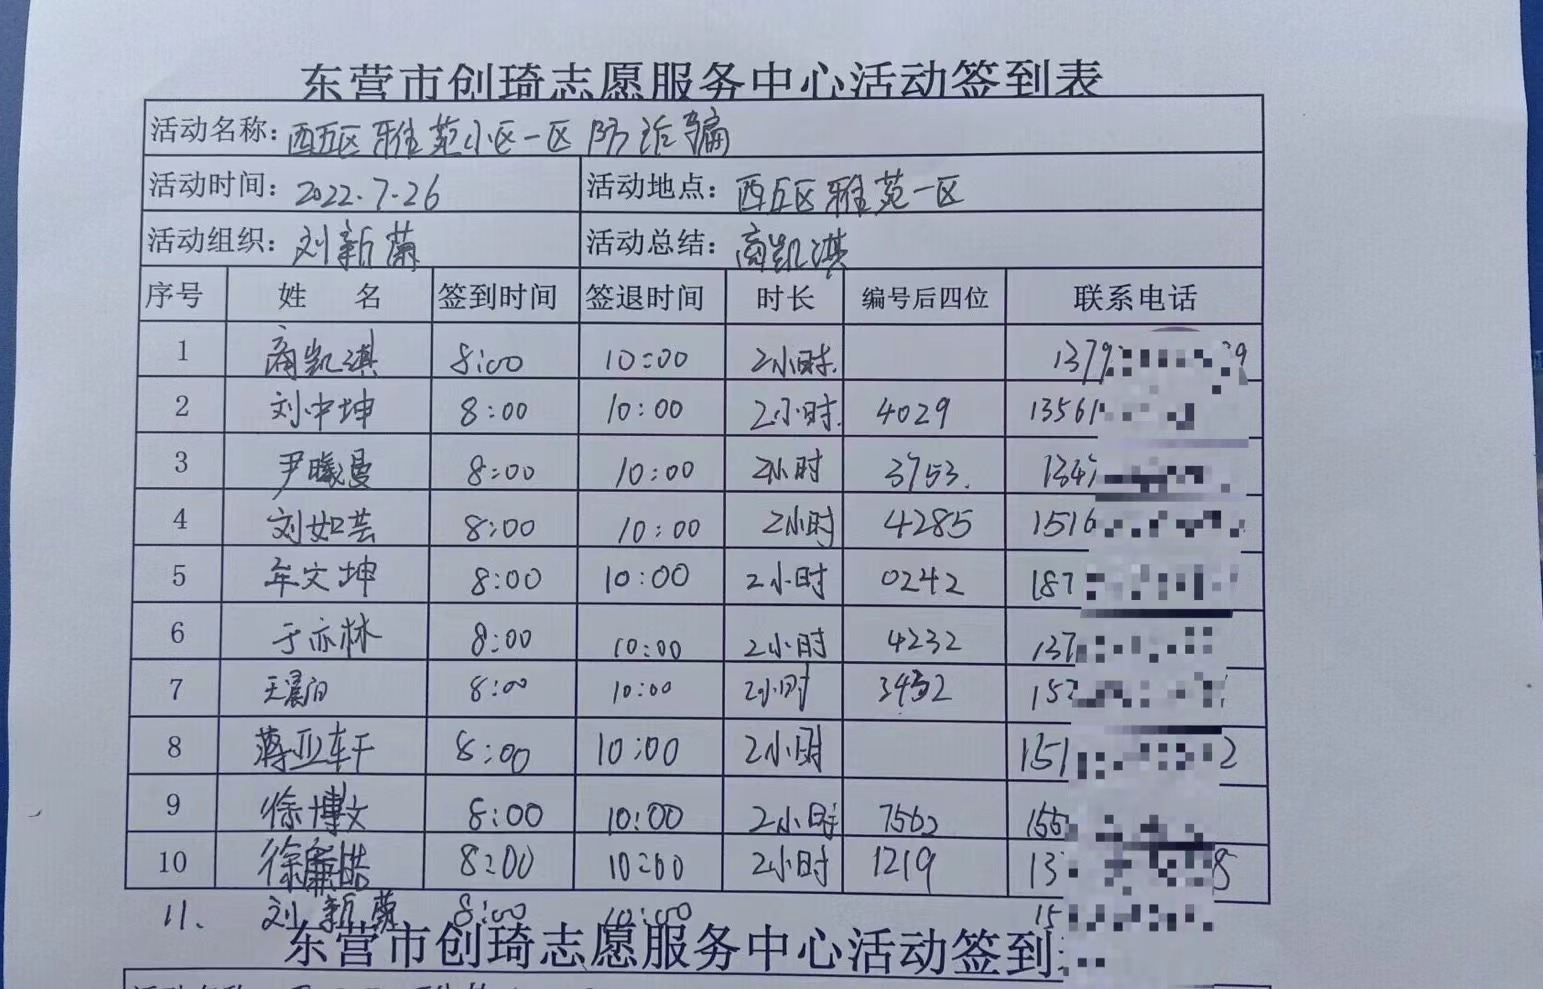 东营市创琦志愿服务中心活动签到表
活动名称：西五区雅苑小区一区防诈骗
活动时间：2022.7.26 活动地点：西五区雅苑一区
活动组织：刘新菊 活动总结：商凯淇
序号 姓 名 签到时间 签退时间 时长 编号后四位 联系电话
1 商凯淇 8:00 10:00 2小时. 1379 9
2 刘中坤 8:00 10:00 2小时. 4029 13561
3 尹曦曼 8:00 10:00 2小时 3753. 134
4 刘如芸 8:00 10:00 2小时 4285 1516
5 牟文坤 8:00 10:00 2小时 0242 187
6 于亦林 8:00 10:00 2小时 4232 137
7 8:00 10:00 2小时 3432 152
8 蒋亚轩 8:00 10:00 2小时 151 2
9 徐博文 8:00 10:00 2小时 7562 155
10 徐 8:00 10:00 2小时 1219 13 8
11. 刘新菊 8:00 10:00 15
东营市创琦志愿服务中心活动签到